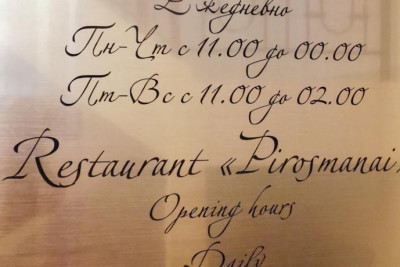 Ежедневно
Пн-Чт с 11.00 до 00.00
Пт-Вс с 11.00 до 02.00
Restaurant «Pirosmanai»
Opening hours
Daily